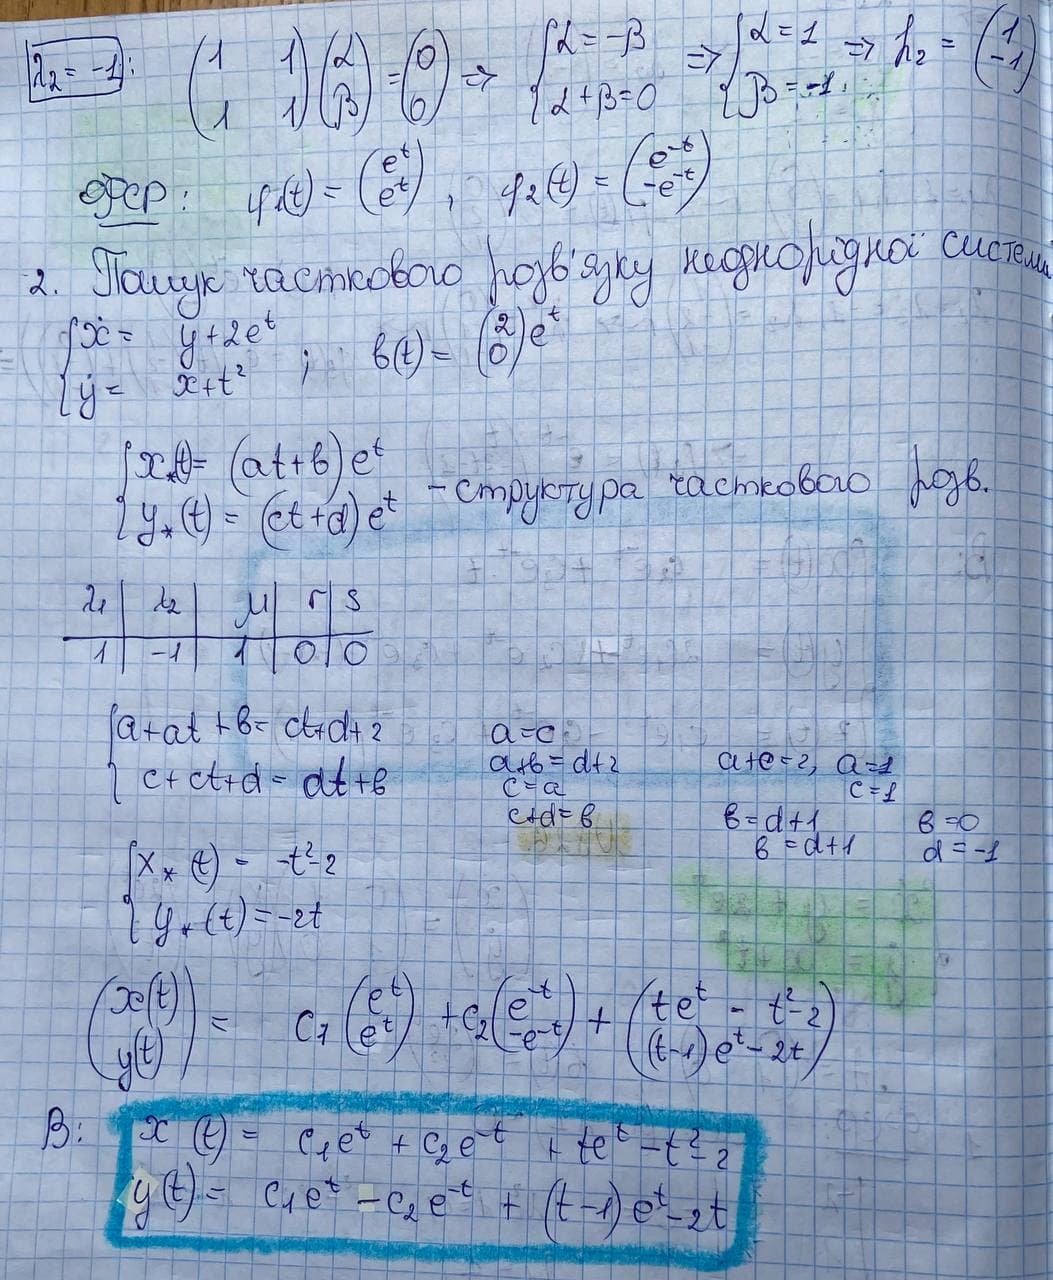 λ₂ = -1 : (1 1; 1 1)(α; β) = (0; 0) ⇒ {α = -β; α + β = 0 ⇒ {α = 1; β = -1 ⇒ h₂ = (1; -1)
ФСР: φ₁(t) = (eᵗ; eᵗ), φ₂(t) = (e⁻ᵗ; -e⁻ᵗ)
2. Пошук часткового розв'язку неоднорідної системи
{ẋ = y + 2eᵗ
ẏ = x + t² ; b(t) = (2; 0)eᵗ
{x*(t) = (at + b)eᵗ
y*(t) = (ct + d)eᵗ - структура часткового розв.
λ₁ | λ₂ | μ | r | s
1 | -1 | 1 | 0 | 0
{a + at + b = ct + d + 2
c + ct + d = at + b
a = c
a + b = d + 2
c = a
c + d = b
a + c = 2, a = 1
c = 1
b = d + 1
b = d + 1
b = 0
d = -1
{x**(t) = -t² - 2
y*(t) = -2t
(x(t); y(t)) = c₁(eᵗ; eᵗ) + c₂(e⁻ᵗ; -e⁻ᵗ) + (teᵗ - t² - 2; (t-1)eᵗ - 2t)
В: x(t) = c₁eᵗ + c₂e⁻ᵗ + teᵗ - t² - 2
y(t) = c₁eᵗ - c₂e⁻ᵗ + (t-1)eᵗ - 2t